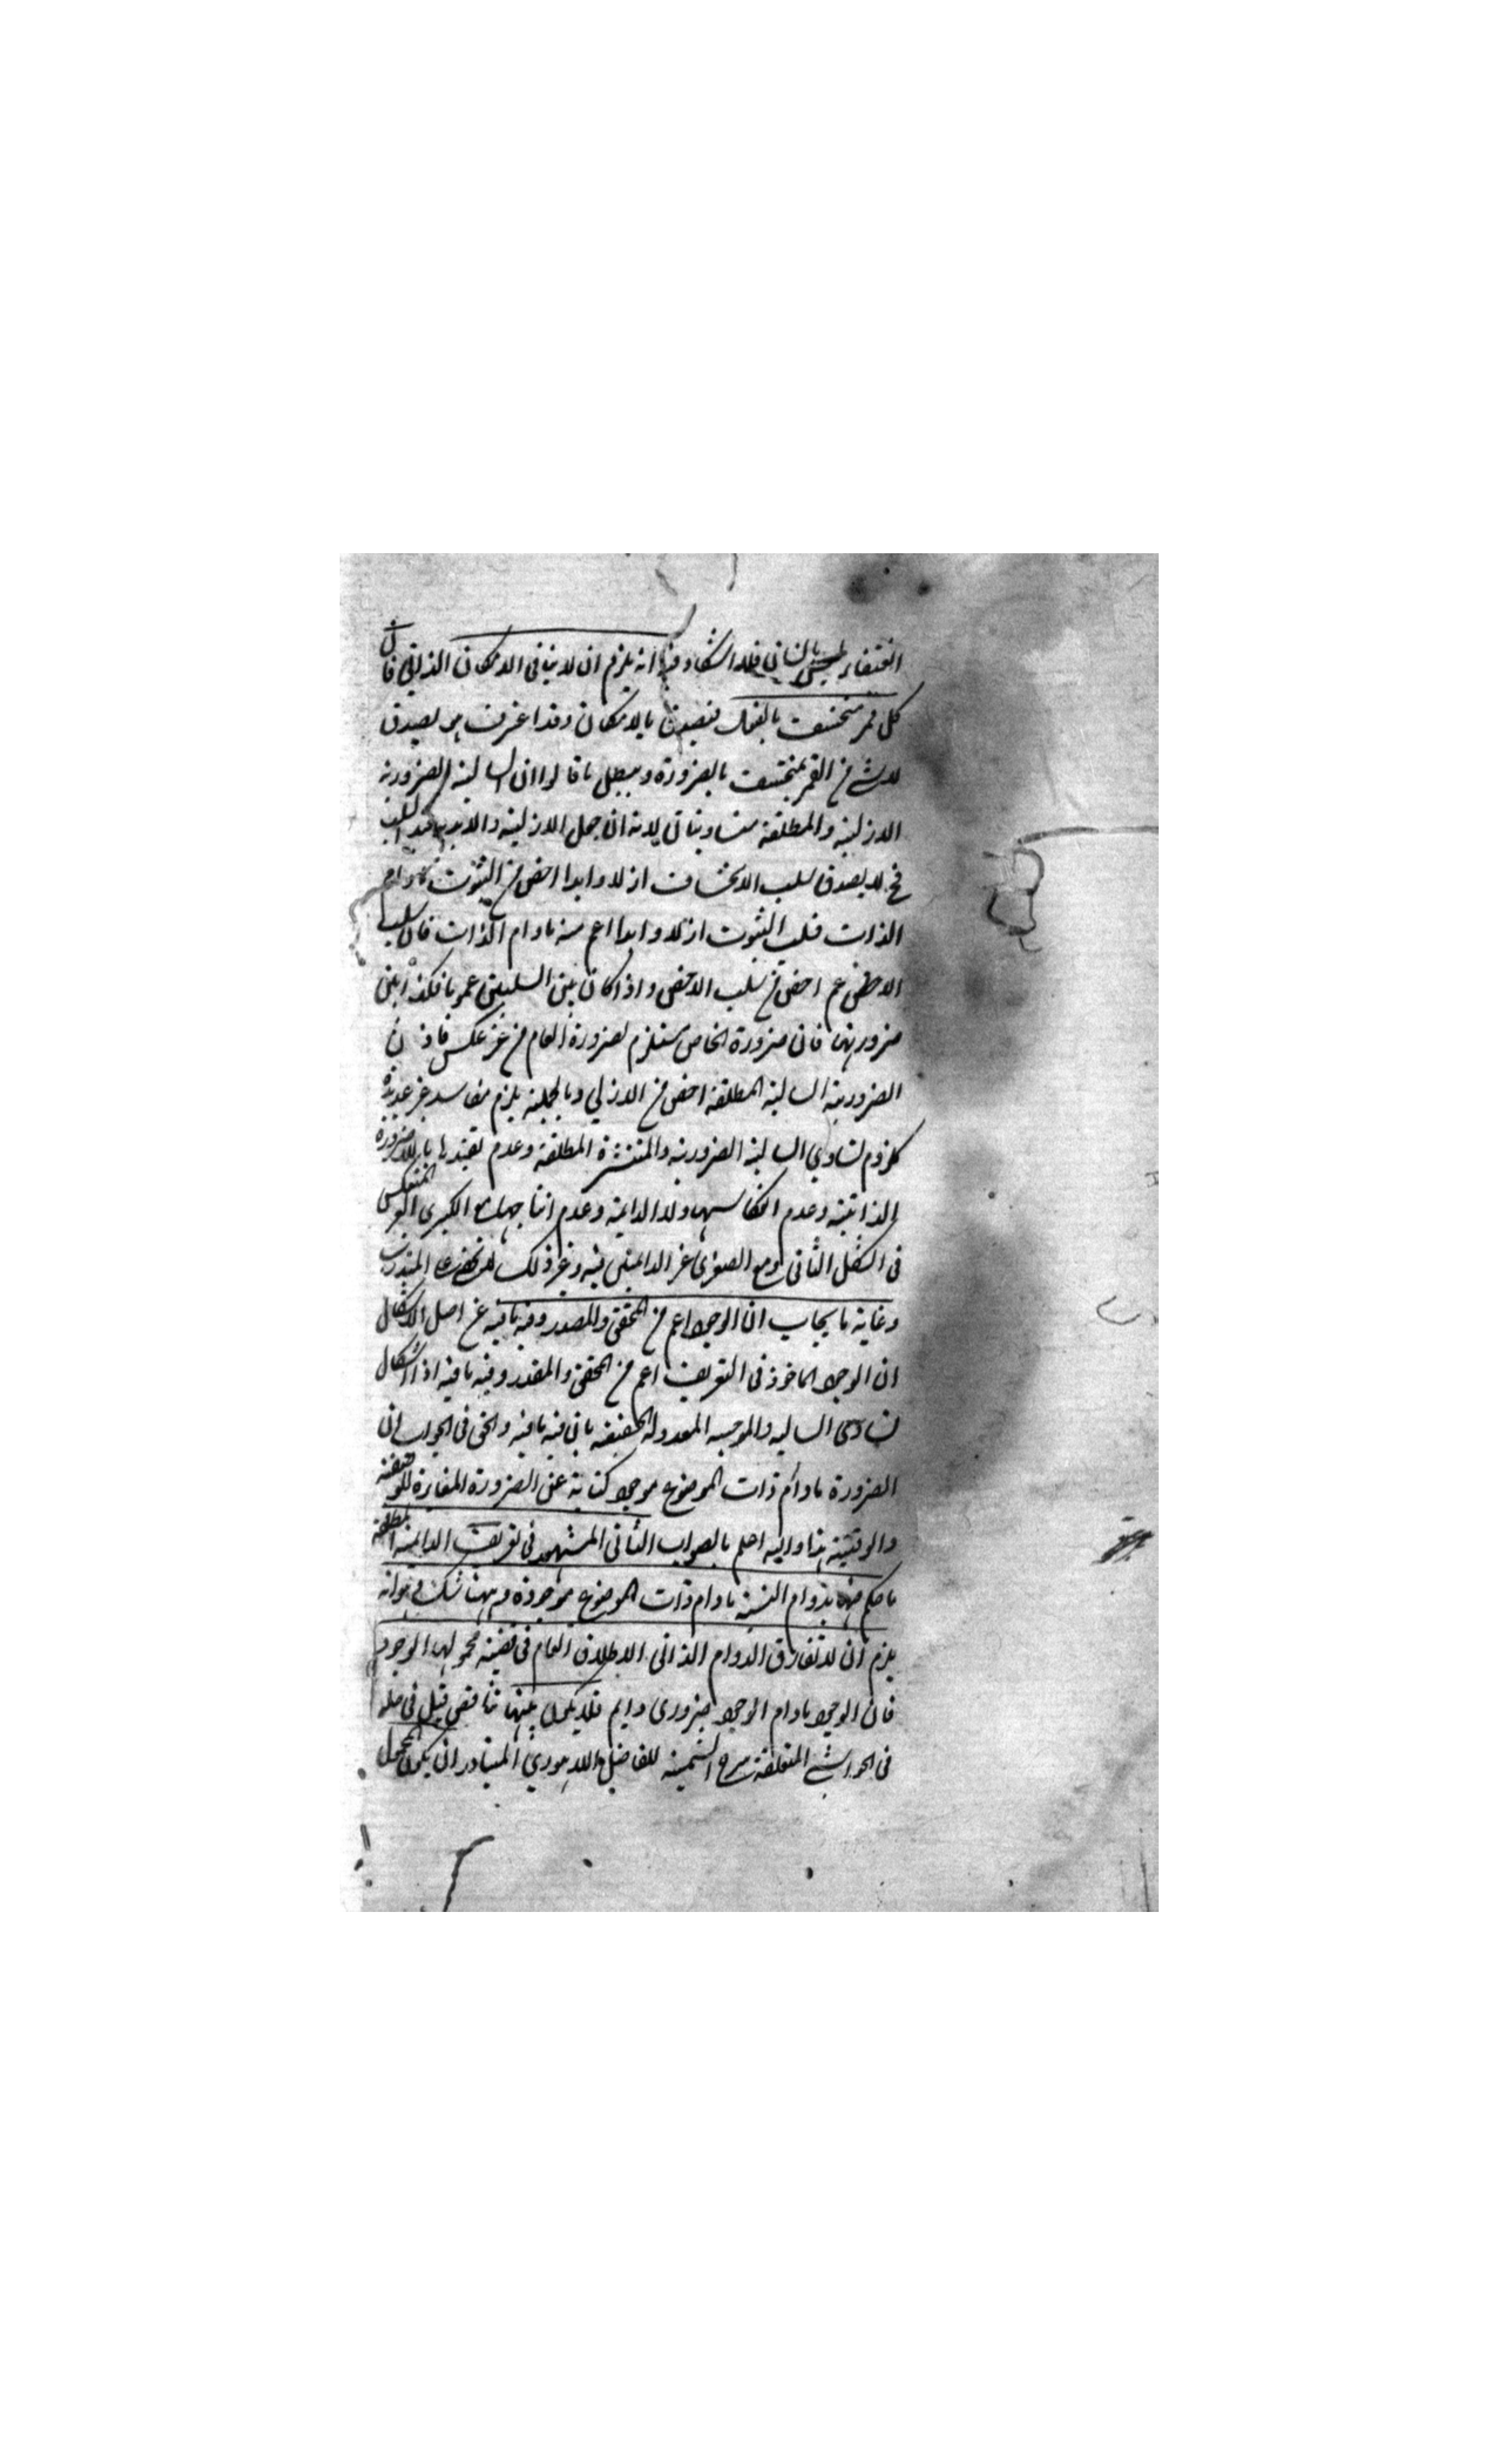 انه يلزم ان لا ينافى الامكان الذاتي فان
كل قمر منخسف بالفعل فيصدق بالامكان وقد اعترف بصدق
لا شئ من القمر بمنخسف بالضرورة ويبطل ما قالوا ان السالبة الضرورية
الازلية والمطلقة متساويتان لانه ان جعل الازلية والابدية قيد السلب
فح لا يصدق سلب الانخساف ازلا وابدا اخص من الثبوت مادام
الذات فسلب الثبوت ازلا وابدا اعم منه مادام الذات فان سلب
اخص من سلب الاخص واذا كان بين السلبين عموما فكذا بين
ضرورتهما فان ضرورة الخاص مستلزم لضرورة العام من غير عكس فاذن
الضرورية السالبة المطلقة اخص من الازلي وبالجملة يلزم مفاسد غير عديدة
كلزوم تساوي السالبة الضرورية والمنتشرة المطلقة وعدم تقييدها باللاضرورة
الذاتية وعدم انعكاسها ولا الدائمة وعدم انتاجها مع الكبرى الغير المنعكس
فى الشكل الثانى ومع الصغرى غير الدائمتين فيه وغير ذلك
وغاية ما يجاب ان الوجود اعم من المحقق والمقدر وفيه ما فيه عن اصل الاشكال
ان الوجود الماخوذ فى التعريف اعم من المحقق والمقدر وفيه ما فيه اذا اشكال
تساوى السالبه والموجبه المعدوله الحقيقه باق فيه ما فيه والحق فى الجواب ان
الضرورة مادام ذات الموضوع موجود كناية عن الضرورة المغايرة للوصفية
والوقتية هذا والله اعلم بالصواب الثانى المشهور فى تعريف الدائمة المطلقة
ما حكم فيها بدوام النسبة مادام ذات الموضوع موجودة وههنا شك وهو انه
يلزم ان لا تفارق الدوام الذاتى الاطلاق العام فى قضية محمولها الوجود
فان الوجود مادام الوجود ضرورى دايم فلا يكون بينهما تناقض قيل فى حله
فى الحواشى المتعلقة بشرح الشمسية للفاضل اللاهوري المتبادر ان يكون المحمول